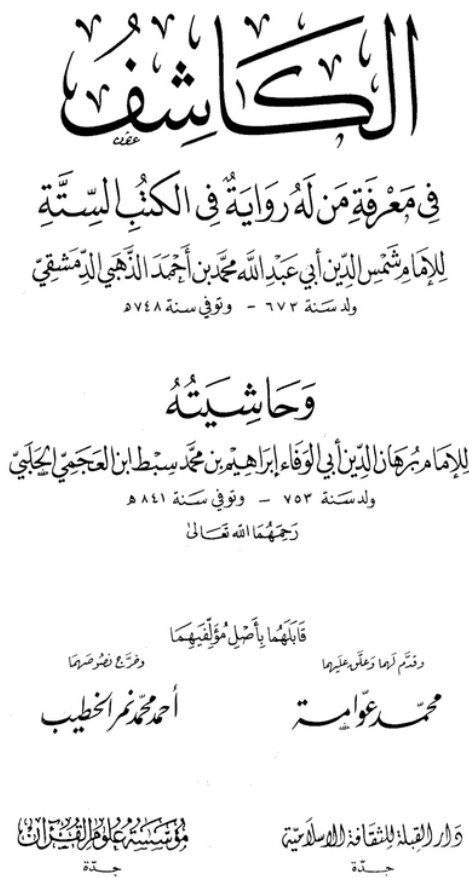 الكَاشِفُ
فِي مَعْرِفَةِ مَن لَهُ رِوَايَةٌ فِي الكُتُبِ السِّتَّةِ
لِلإمَامِ شَمْسِ الدِّين أَبي عَبْدِ اللَّه مُحَمَّد بن أَحْمَدَ الذَّهَبي الدِّمَشقيّ
ولد سَنة ٦٧٣ - وتوفي سنة ٧٤٨ھ
وَحَاشِيَتُهُ
لِلإمَام بُرهَان الدِّين أبي الوَفَاء إبرَاهِيم بن محمَّد سِبط ابن العَجَمِيّ الحَلَبيّ
ولد سَنة ٧٥٣ - وتوفي سَنة ٨٤١ ھ
رَحِمَهُمَا اللّه تَعَالىٰ
قَابَلَهُمَا بِأَصْلِ مُؤَلِّفَيهِمَا
وقدَّم لهَما وَعلَّق عليهما
وخرَّج نصُوصَهما
محمّد عوّامة
أحمد محمّد نمر الخطيب
دَار القبلة للثقافة الإسلاميّة
جــدّة
مُؤسّسَة عُلوم القُرآن
جــدّة